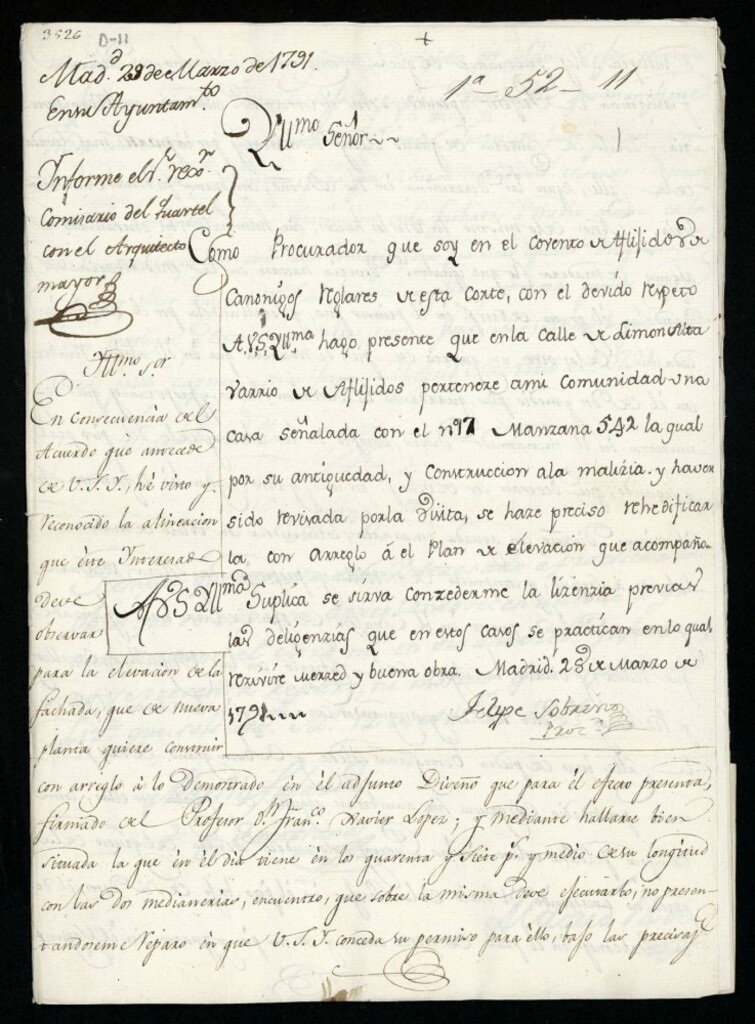 3526 D-11
+
1ª - 52 - 11
Mad.d 29 de Marzo de 1791.
En su Ayuntam.to
Informe el s.r rexor.
Comisario del Quartel
con el Arquitecto
mayor
Yll.mo Señor
Como Procurador que soy en el Covento de Aflijidos de
Canonigos Reglares de esta Corte, con el devido respeto
A.V.S. Yll.ma hago presente que en la Calle de Limon Alta
varrio de Aflijidos pertenere a mi Comunidad una
casa señalada con el nº 17 Manzana 542 la qual
por su antiguedad, y Construccion a la malizia y haver
sido revisada por la visita, se haze preciso rehedificar
la, con arreglo á el Plan de elevacion que acompaño.
A V S Yll.ma Suplica se sirva Conzederme la lizenzia previas
las deligenzias que en estos casos se practican en lo qual
rezivire merzed y buena obra. Madrid. 28 de Marzo de
1791
Felipe Sobrino
Proc.r
Yll.mo s.or
En Consecuencia del
Acuerdo que antecede
de V.S.Y. hé visto y
reconocido la alineacion
que éste Interesado
deve
observar
para la elevacion de la
fachada, que de nueva
planta quiere construir
con arreglo á lo demostrado en él adjunto Diseño que para él efecto presenta,
firmado del Profesor D.n Fran.co Xavier Lopez; y mediante hallarse bien
situada la que en él dia tiene en los quarenta y siete p.s y medio de su longitud
con las dos medianerias, encuentro, que sobre la misma deve ejecutarlo, no presen-
tandoseme reparo en que V.S.Y. conceda su permiso para éllo, bajo las precisas